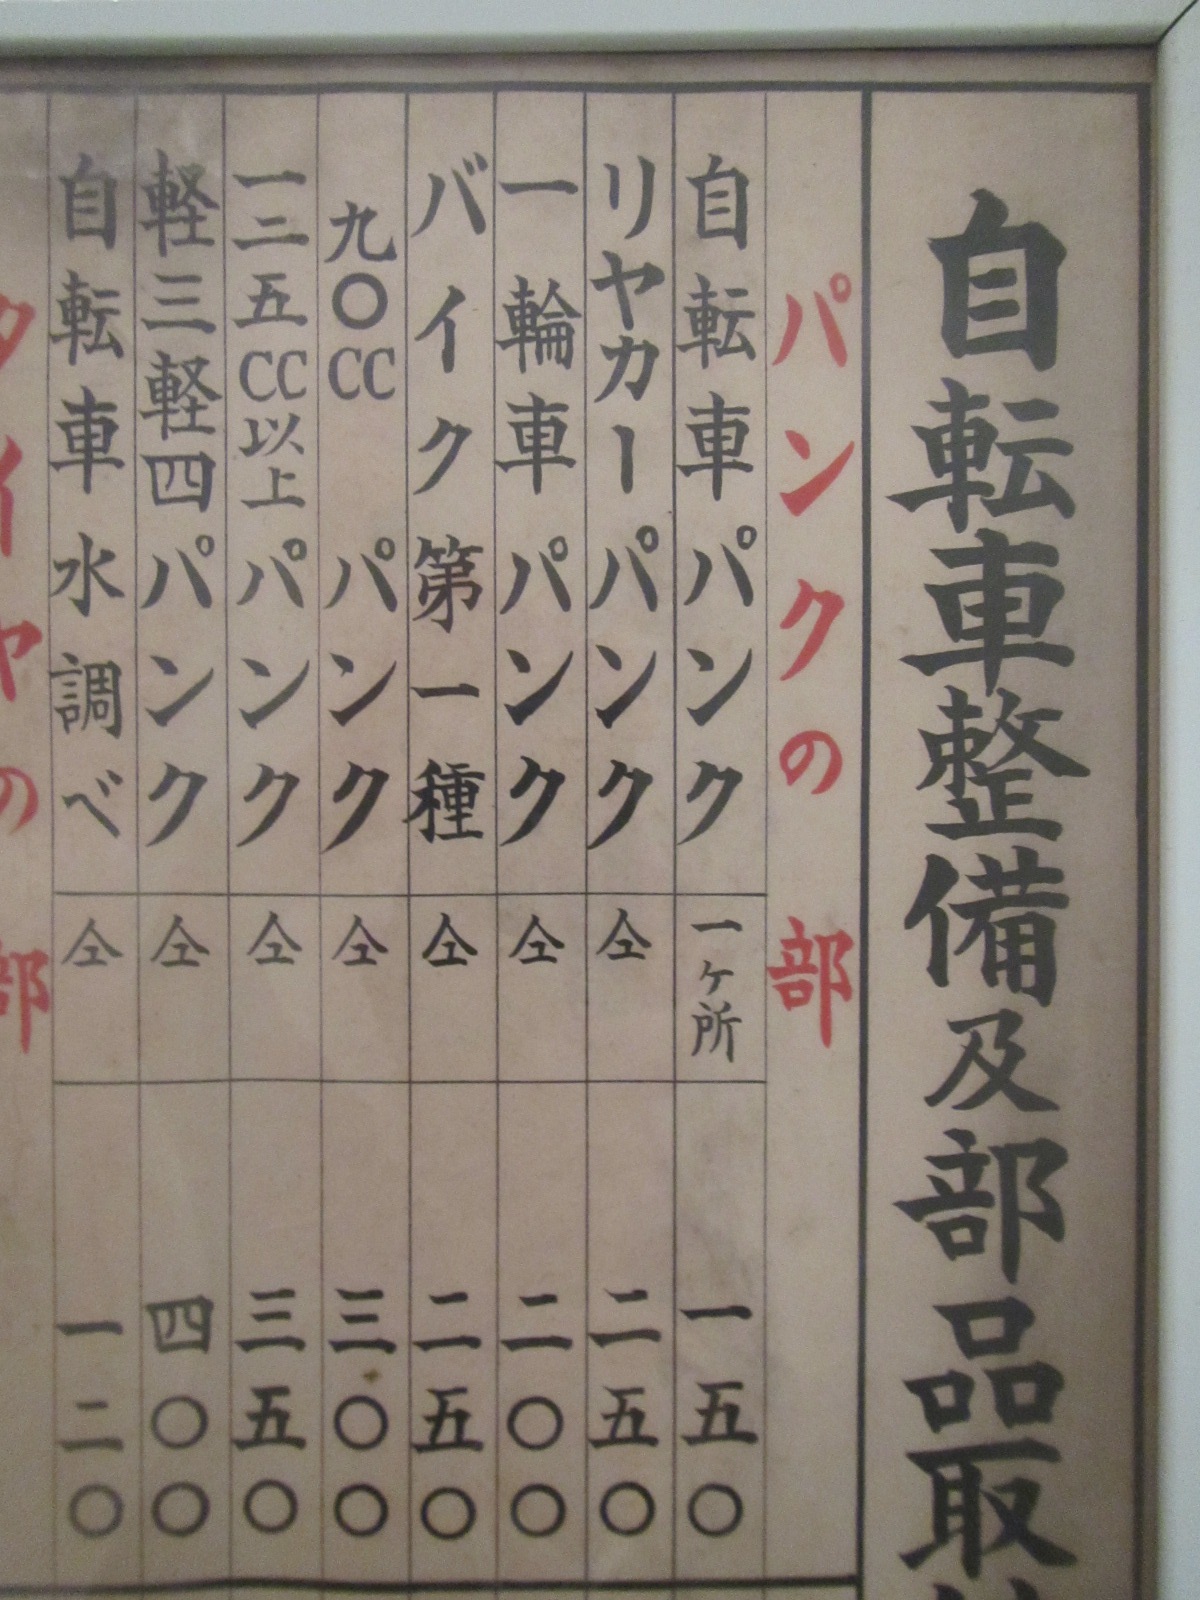 自転車整備及部品取
パンクの部
自転車パンク 一ヶ所 一五〇
リヤカーパンク 仝 二五〇
一輪車パンク 仝 二〇〇
バイク第一種 仝 二五〇
九〇CC パンク 仝 三〇〇
一二五CC以上パンク 仝 三五〇
軽三軽四パンク 仝 四〇〇
自転車水調べ 仝 一二〇
タイヤの部